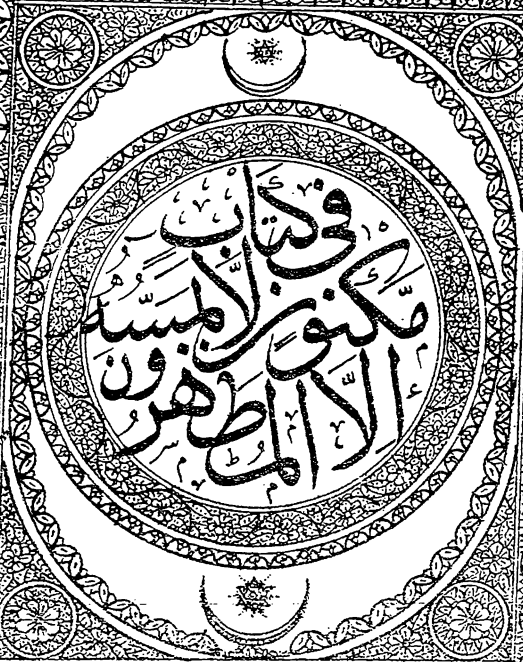 في كِتَابٍ
مَّكْنُونٍ لَّا يَمَسُّهُ
إِلَّا الْمُطَهَّرُونَ